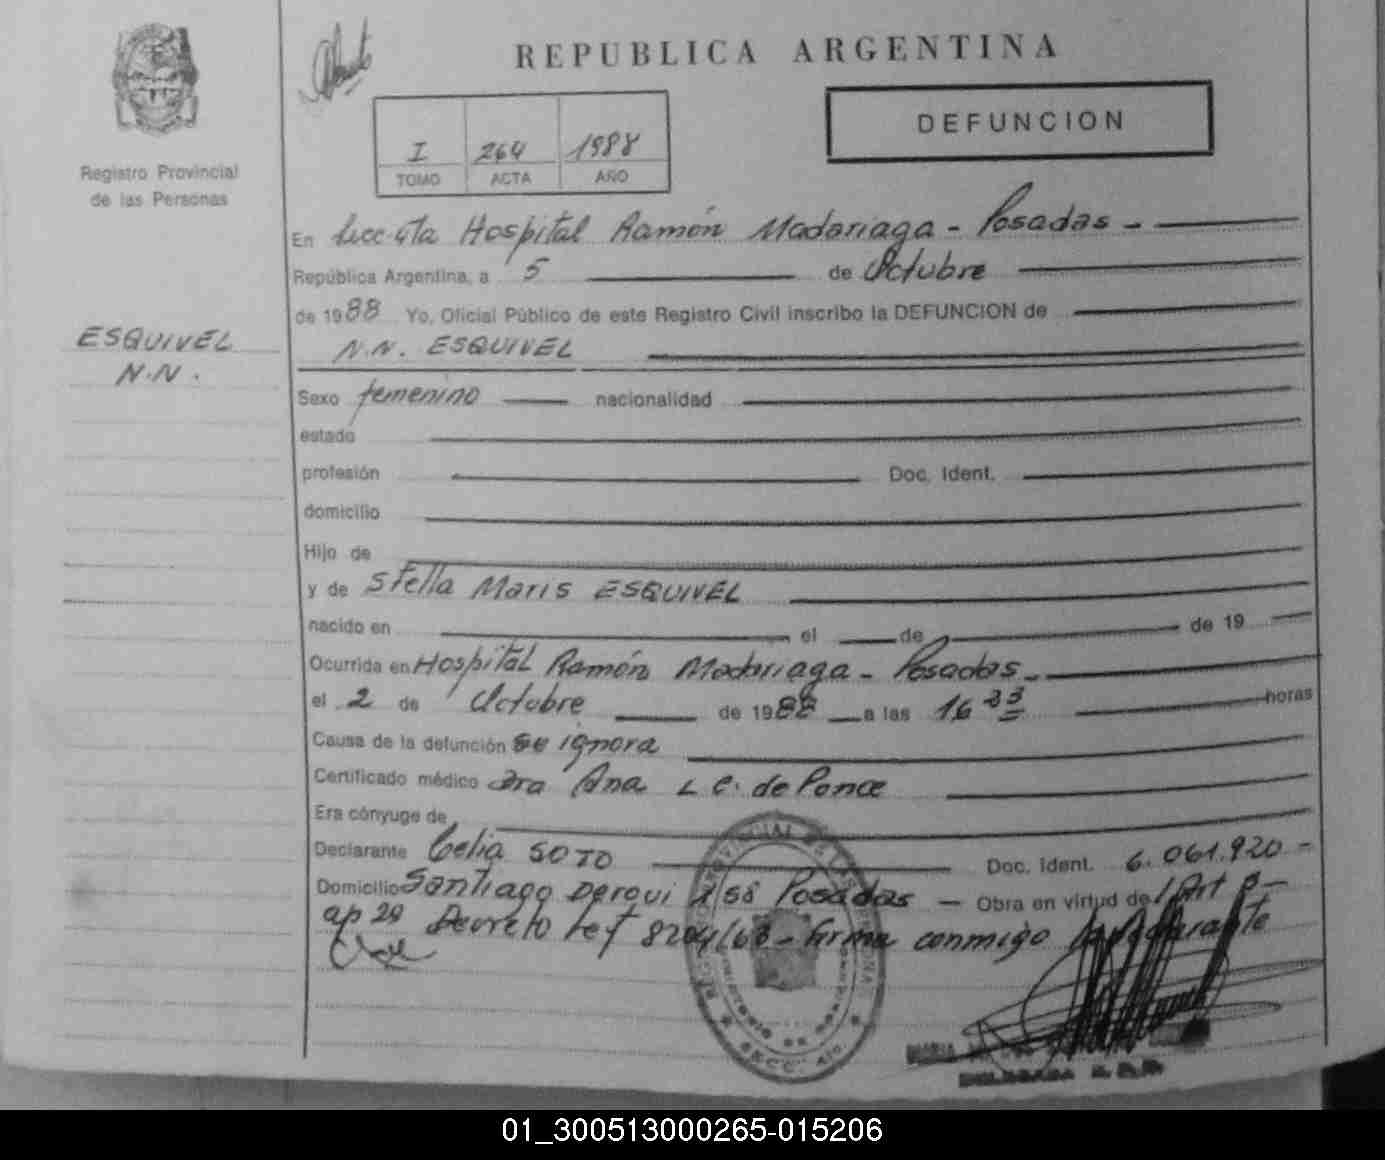 REPUBLICA ARGENTINA
DEFUNCION
I 264 1988
TOMO ACTA AÑO
Registro Provincial
de las Personas
En Secc. 4ta Hospital Ramón Madariaga - Posadas -
República Argentina, a 5 de Octubre
de 1988 Yo, Oficial Público de este Registro Civil inscribo la DEFUNCION de
ESQUIVEL
N.N.
N.N. ESQUIVEL
Sexo femenino nacionalidad
estado
profesión Doc. Ident.
domicilio
Hijo de
y de Stella Maris ESQUIVEL
nacido en el de de 19
Ocurrida en Hospital Ramón Madariaga - Posadas -
el 2 de Octubre de 1988 a las 16 33 horas
Causa de la defunción se ignora
Certificado médico Dra Ana L C. de Ponce
Era cónyuge de
Declarante Celia SOTO Doc. Ident. 6.061.920 -
Domicilio Santiago Derqui Posadas - Obra en virtud de Art
ap 29 Decreto Ley 8204/63 - Firma conmigo declarante
01_300513000265-015206